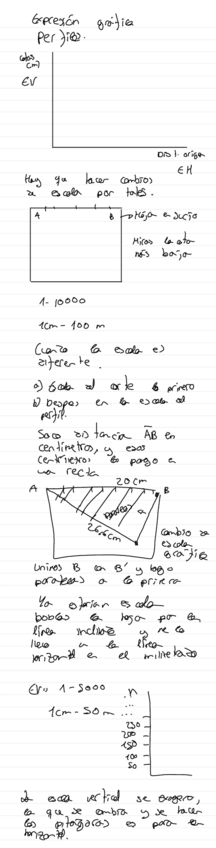 Expresión gráfica
Perfiles.
cotas
(m)
EV
Dist. origen
EH
Hay que hacer cambios
de escala por tales.
A B
Hoja en sucio
Miras la cota
más baja
1-10000
1cm - 100 m
Cuando la escala es
diferente.
a) Escala del corte primero
b) Despues en la escala del
perfil.
Saco distancia AB en
centímetros, y esos
centímetros lo pago a
una recta
A 20cm B
26,6cm
cambio de
escala
gráfica
unimos B con B' y hago
paralelas a la primera
Ya estarían escala
por la
línea inclinada y se lo
llevo a la línea
horizontal en el milimetrado
EV= 1-5000
1cm - 50 m
n
...
250
200
150
100
50
La escala vertical se exagera,
la que se cambia y se hacer
los es para
horizontal.